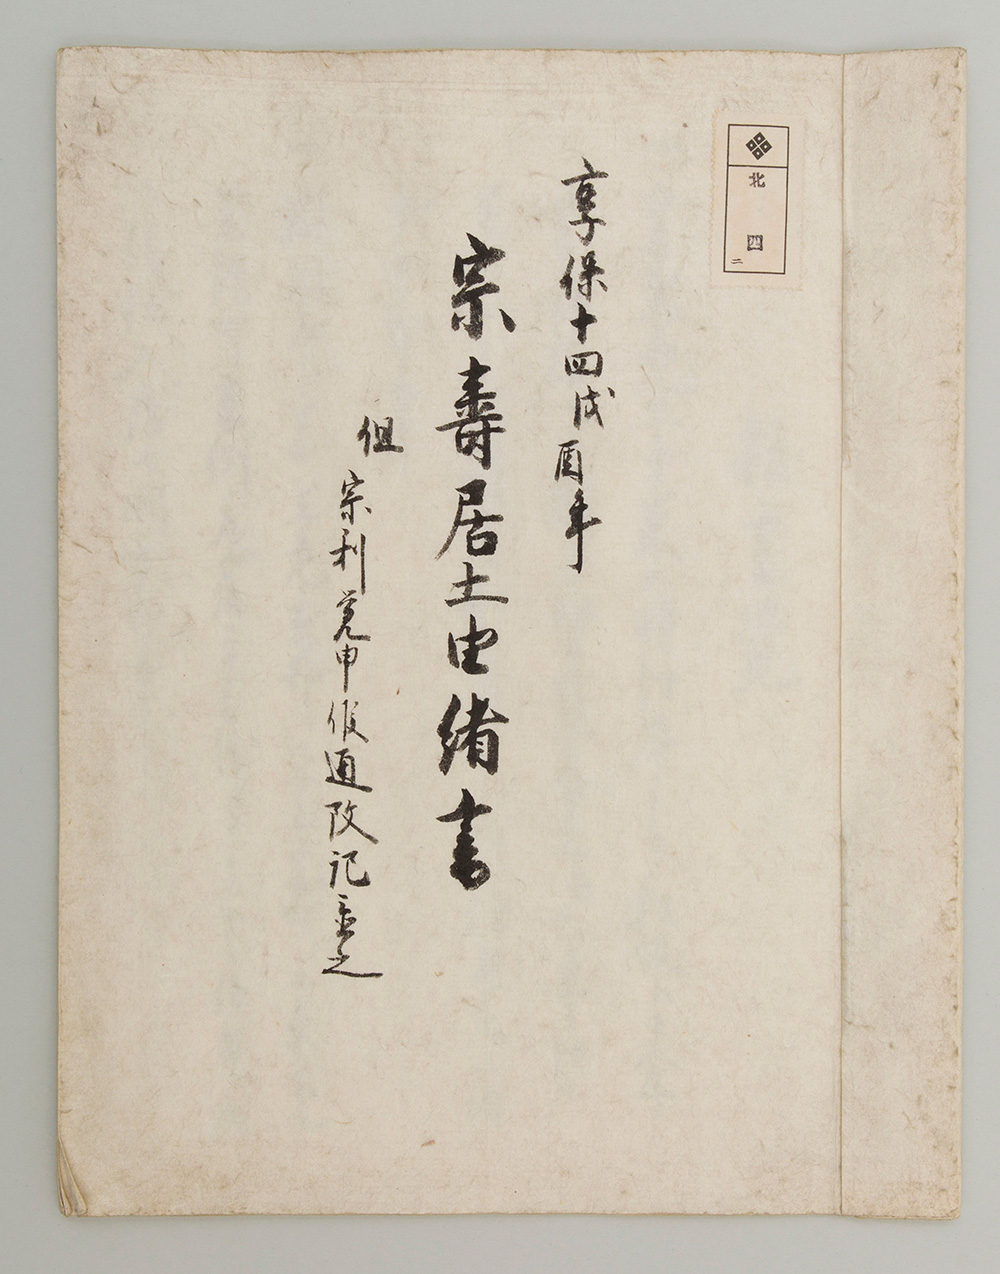 北
四
二
享保十四戊酉年
宗壽居士由緒書
但
宗利覚申候通改記置之